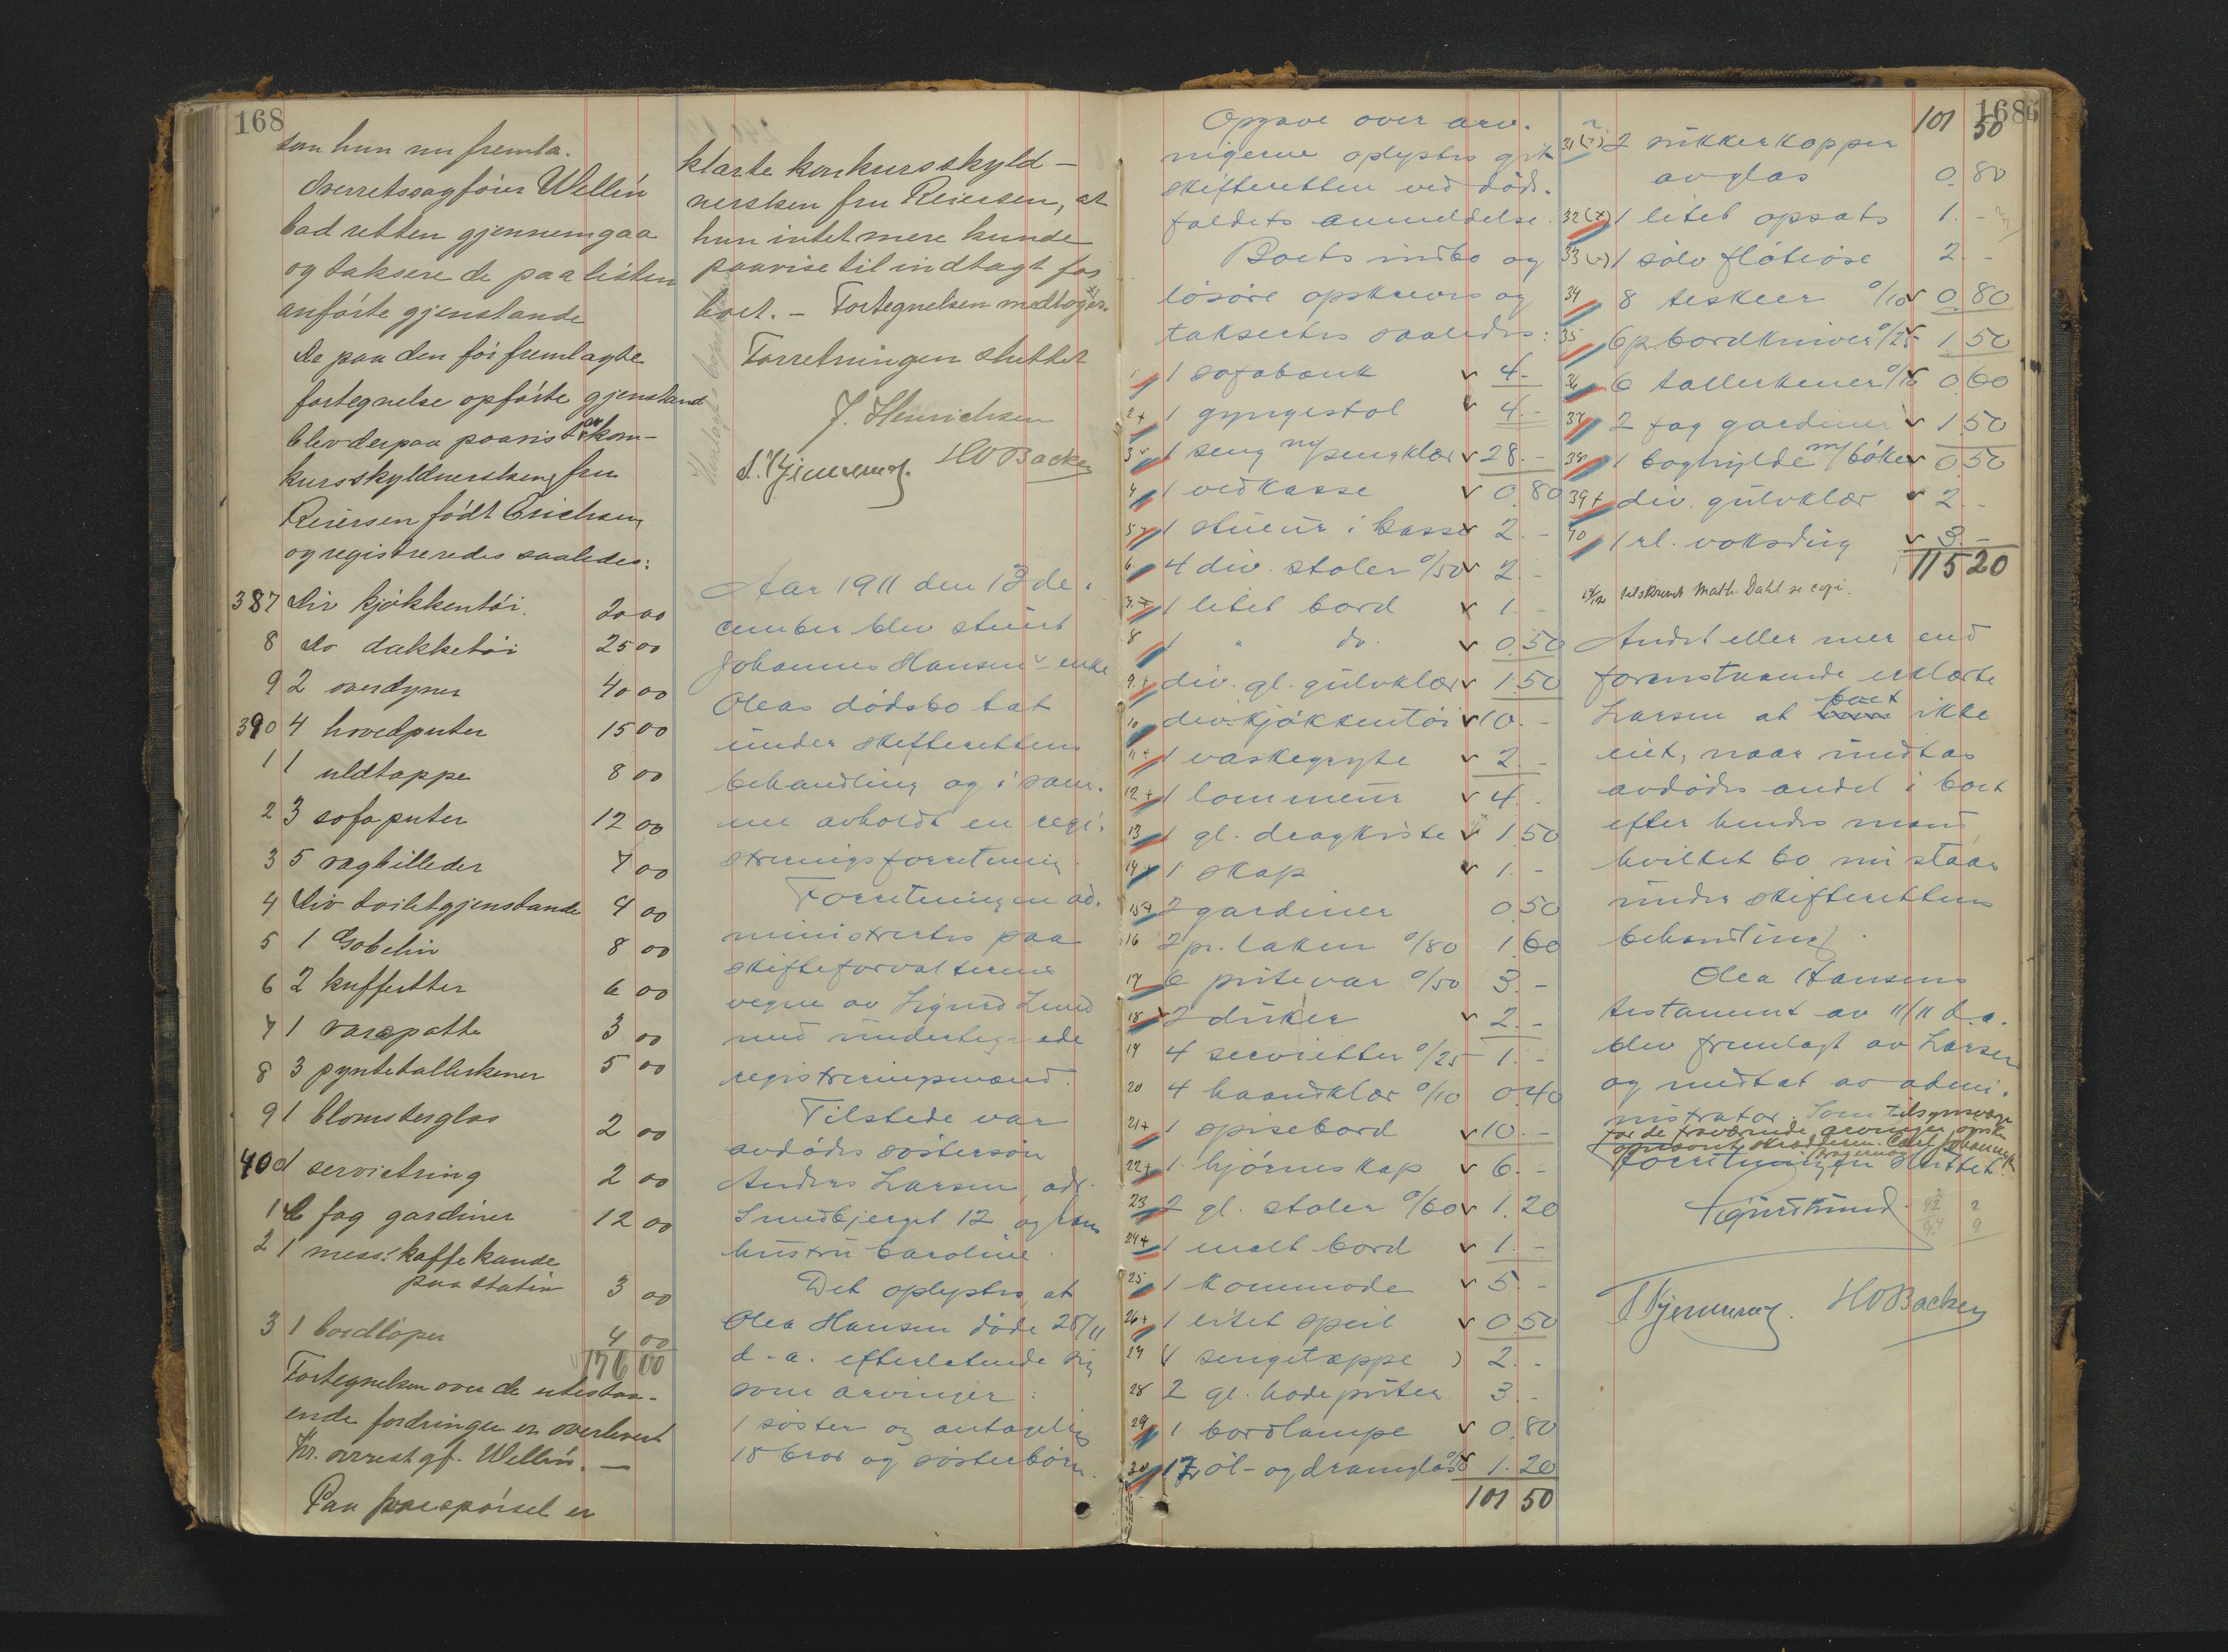 168
som hun nu fremla.
Overretssagfører Wellén
bad retten gjennemgaa
og taksere de paa listen
anførte gjenstande
De paa den før fremlagte
fortegnelse opførte gjenstand
blev derpaa paavist av kon-
kursskyldnersken, fru
Reiersen født Erichsen
og registreredes saaledes:
387 Div kjøkkentøi. 20 00
8 do dækketøi 25 00
9 2 overdyner 40 00
390 4 hovedputer 15 00
1 1 uldtæppe 8 00
2 3 sofaputer 12 00
3 5 vægbilleder 7 00
4 Div toiletgjenstande 4 00
5 1 Gobelin 8 00
6 2 kuffertter 6 00
7 1 3 00
8 3 pyntetallerkener 5 00
9 1 blomsterglas 2 00
400 1 servietring 2 00
1 fag gardiner 12 00
2 1 mess. kaffekande
paa stativ 3 00
3 1 bordløper 4 00
176 00
Fortegnelsen over de utestaa-
ende fordringer er overlevert
hr. Wellén. —
Paa forespørsel er
klærte konkursskyld-
nersken fru Reiersen, at
hun intet mere kunde
paavise til indtægt for
boet. — Fortegnelsen
Forretningen sluttet
J. Henrichsen
HO Backer
Aar 1911 den 13 de-
cember blev
Johannes Hansens enke
Oleas dødsbo tat
under skifterettens
behandling og i sam-
me avholdt en regi-
streringsforretning.
Forretningen ad-
ministrertes paa
skifteforvalterens
vegne av Sigurd Lund
med undertegnede
registreringsmænd.
Tilstede var
avdødes søstersøn
Anders Larsen, adr.
Smedbjerget 12 og hans
hustru Caroline.
Det oplystes, at
Olea Hansen døde 25/11
d.a. efterlatende sig
som arvinger:
1 søster og antagelig
18 bror og søsterbørn.
Opgave over arv-
ningerne oplystes git
skifteretten ved døds-
faldets anmeldelse.
Boets indbo og
løsøre opskrevs og
taksertes saaledes:
1 1 sofabænk 4.-
2+ 1 gyngestol 4.-
3 1 seng m/sengklær 28.-
4 1 vedkasse 0 80
5 1 stueur i kasse 2.-
6 4 div. stoler a/50 2.-
7 1 litet bord 1.-
8 1 " do. 0.50
9+ div. gl. gulvklær 1.50
10 div. kjøkkentøi 10.-
11+ 1 vaskegryte 2.-
12+ 1 lommeur 4.-
13 1 gl. dragkiste 1.50
14 1 skap 1.-
15+ 2 gardiner 0.50
16 2 pr. laken a/80 1.60
17 6 putevar a/50 3.-
18 2 duker 2.-
19 4 servietter a/25 1.-
20 4 haandklær a/10 0.40
21+ 1 spisebord 10.-
22+ 1 hjørneskap 6.-
23 2 gl. stoler a/60 1.20
24+ 1 malt bord 1.-
25 1 kommode 5.-
26+ 1 litet speil 0.50
27 (1 sengetæppe) 2.-
28 2 gl. hodeputer 3.-
29 1 bordlampe 0.80
30 12 øl- og dramglas 1.20
101 50
168
101 50
31 2 sukkerkopper
av glas 0.80
32 (x) 1 litet opsats 1.-
33 1 sølv fløteøse 2.-
34 8 teskeer a/10 0.80
35 6 p bordkniver a/25 1.50
36 6 tallerkener a/10 0.60
37 2 fag gardiner 1.50
38 1 boghylde m/bøker 0.50
39+ div. gulvklær 2.-
40 1 rl. voksdug 3.-
115 20
tilskrevet Math. Dahl se copi.
Andet eller mer end
foranstaaende erklærte
Larsen at boet ikke
eiet, naar undtas
avdødes andel i boet
efter hendes mand,
hvilket bo nu staar
under skifterettens
behandling.
Olea Hansens
testament av 11/11 d.a.
blev fremlagt av Larsen
og mottat av admi-
nistrator. Som tilsynsværge
for de fraværende arvinger
opnævnt skrædderm. Carl Johannesen
Forretningen sluttet.
Sigurd Lund.
HO Backer